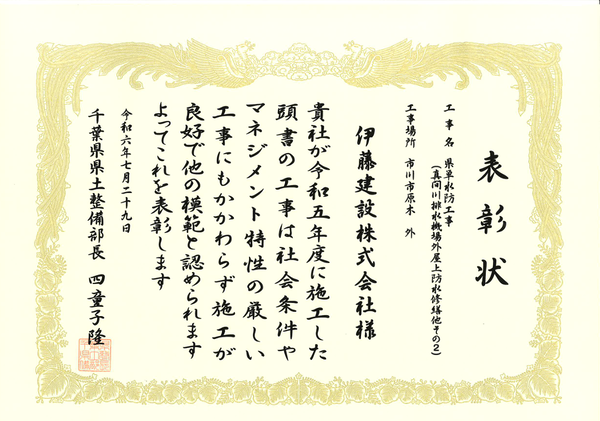 表彰状
工事名 県単水防工事
(真間川排水機場外屋上防水修繕他その2)
工事場所 市川市原木 外
伊藤建設株式会社様
貴社が令和五年度に施工した
頭書の工事は社会条件や
マネジメント特性の厳しい
工事にもかかわらず施工が
良好で他の模範と認められます
よってこれを表彰します
令和六年七月二十九日
千葉県県土整備部長 四童子隆